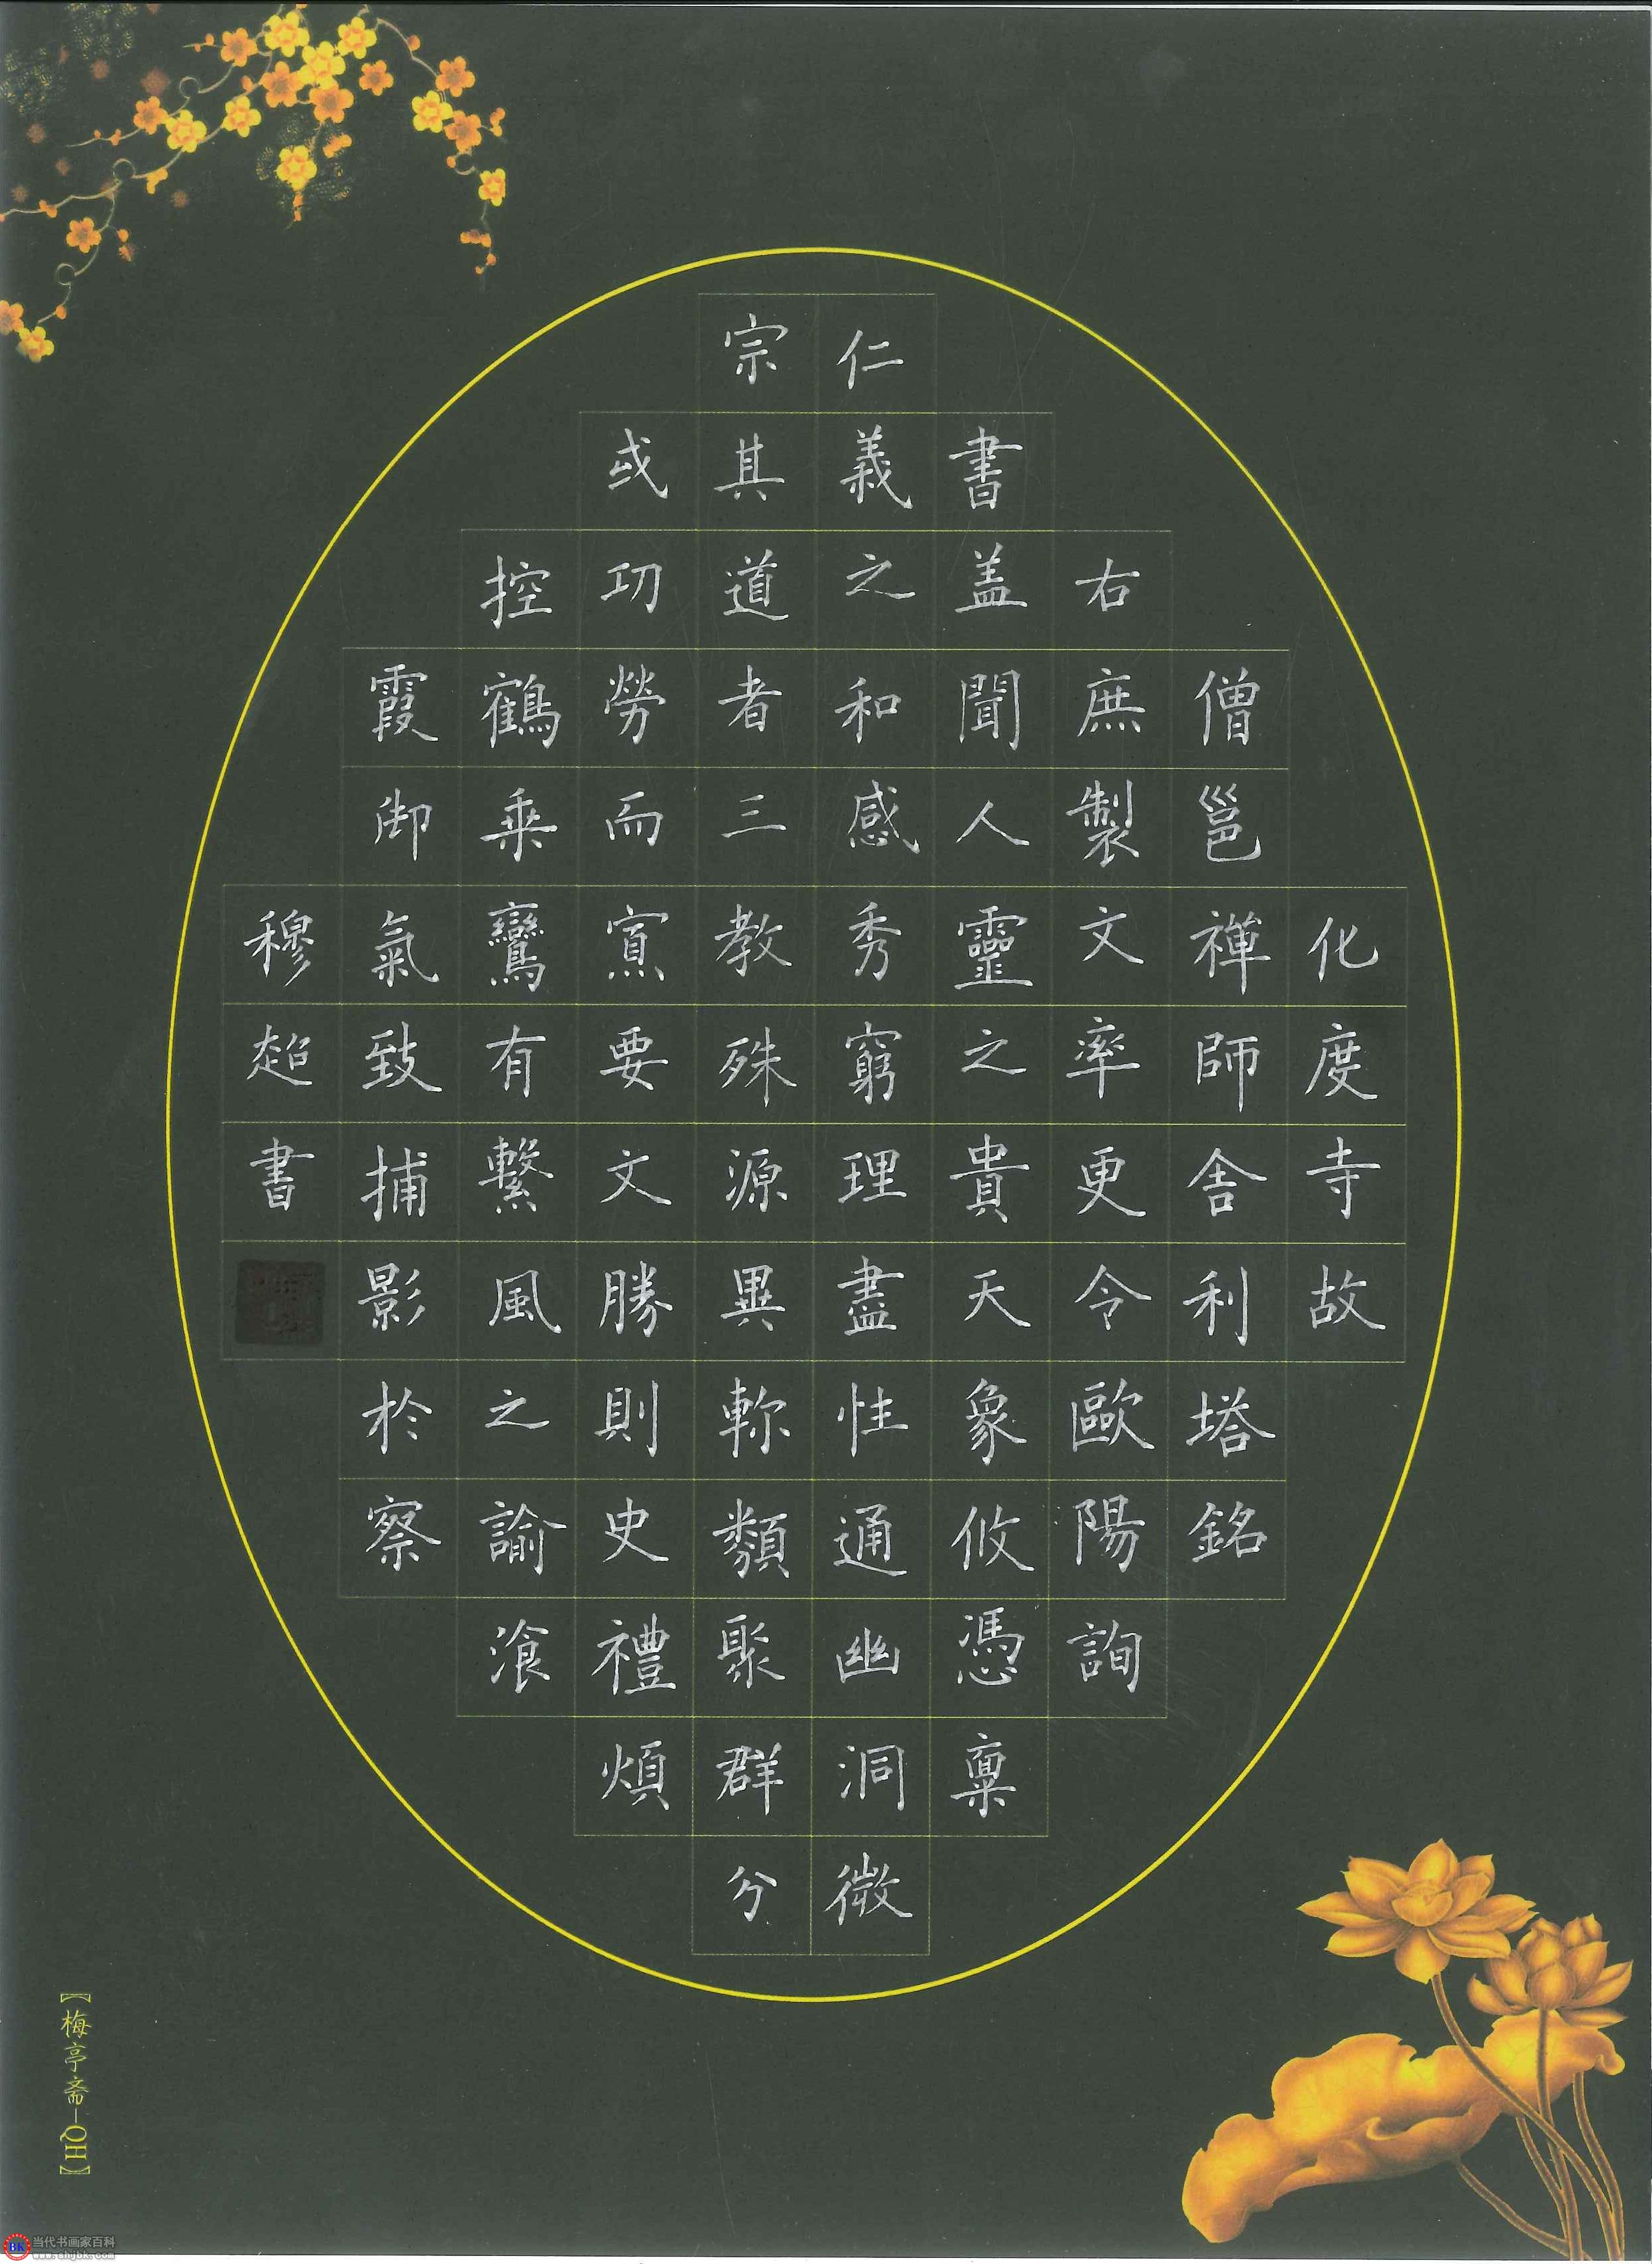 化度寺故
僧邕禪師舎利塔銘
右庶製文率更令歐陽詢
書盖聞人靈之貴天象攸憑稟
仁義之和感秀窮理盡性通幽洞微
宗其道者三教殊源異軫類聚群分
或㓛勞而寡要文勝則史禮煩
控鶴乗鸞有繫風之諭飡
霞御氣致捕影於察
穆超書
【梅亭斋—QH】
当代书画家百科